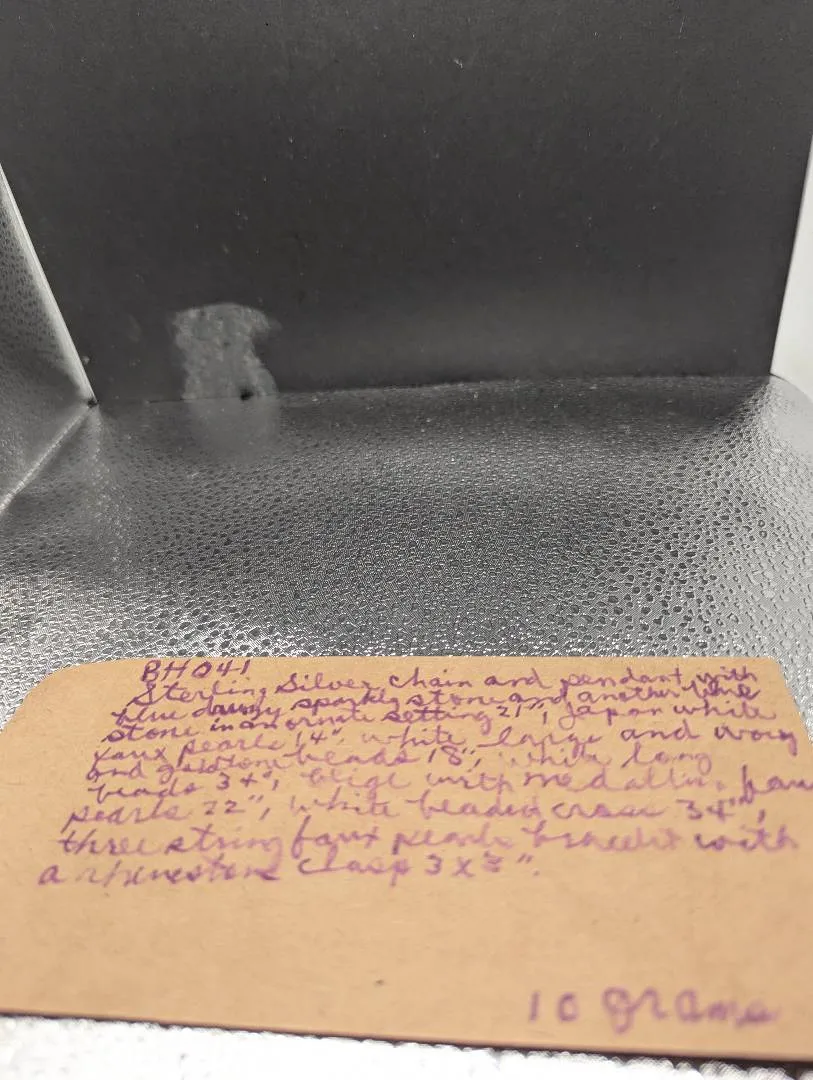 BH041
Sterling Silver chain and pendant with
blue druzy sparkly stone and another blue
stone in an ornate setting 21", Japan white
faux pearls 14", white large and ivory
and goldtone beads 18", white long
beads 34", beige with medallion, faux
pearls 22", white beaded cross 34",
three string faux pearls bracelet with
a rhinestone clasp 3 x
10 grams